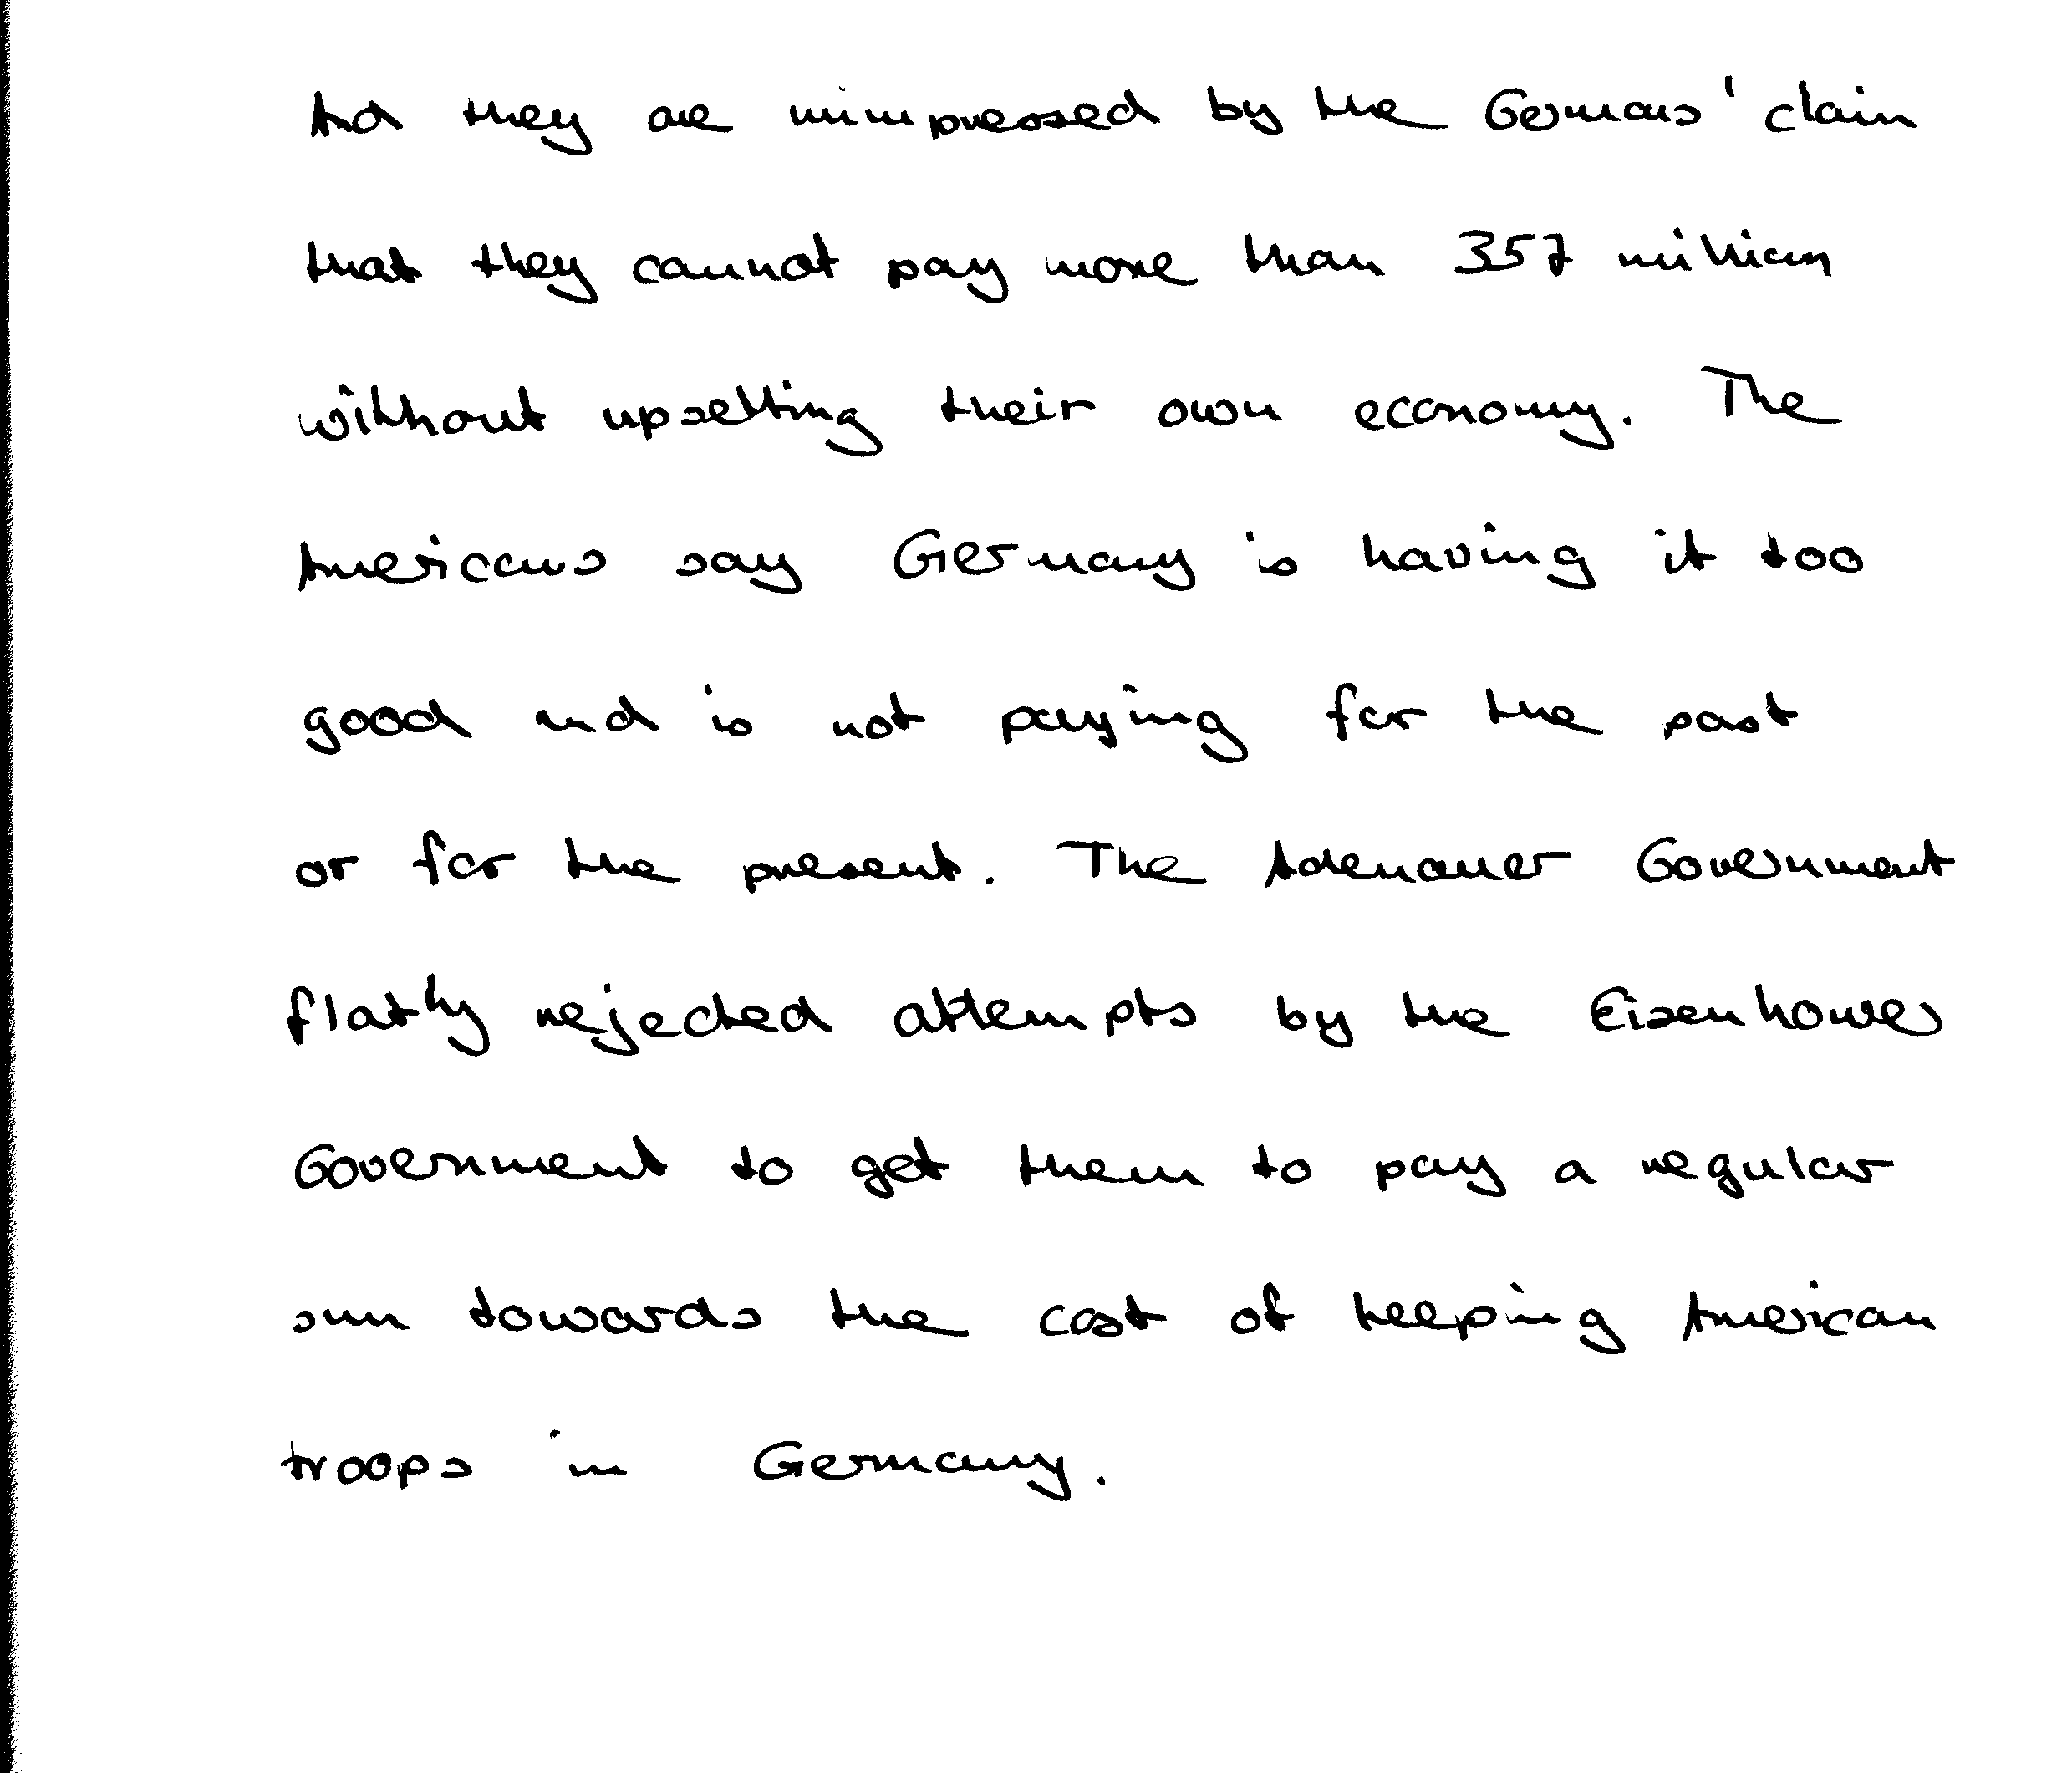 And they are unimpressed by the Germans' claim
that they cannot pay more than 357 million
without upsetting their own economy. The
Americans say Germany is having it too
good and is not paying for the past
or for the present. The Adenauer Government
flatly rejected attempts by the Eisenhower
Government to get them to pay a regular
sum towards the cost of keeping American
troops in Germany.